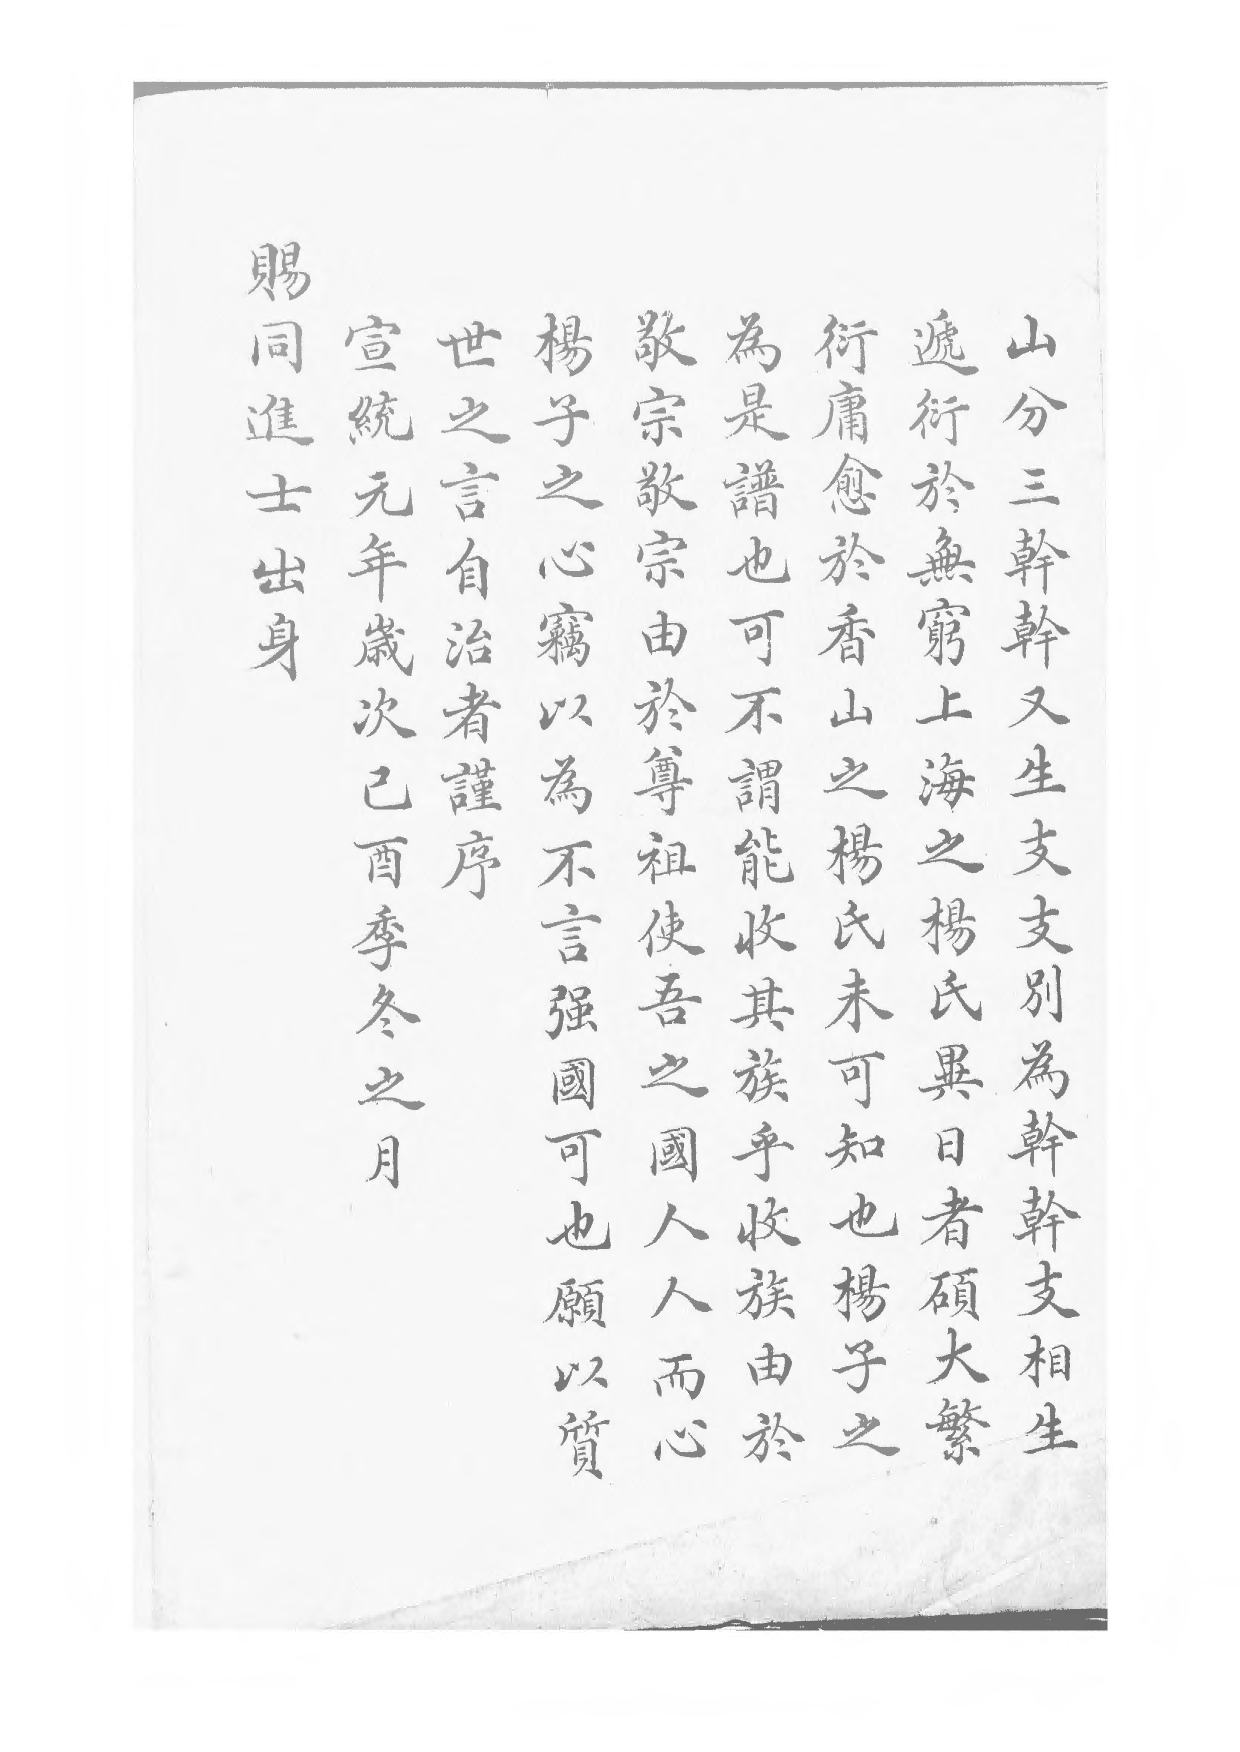 山分三幹幹又生支支別為幹幹支相生
遞衍於無窮上海之楊氏異日者碩大繁
衍庸愈於香山之楊氏未可知也楊子之
為是譜也可不謂能收其族乎收族由於
敬宗敬宗由於尊祖使吾之國人人而心
楊子之心竊以為不言强國可也願以質
世之言自治者謹序
宣統元年歲次己酉季冬之月
賜同進士出身